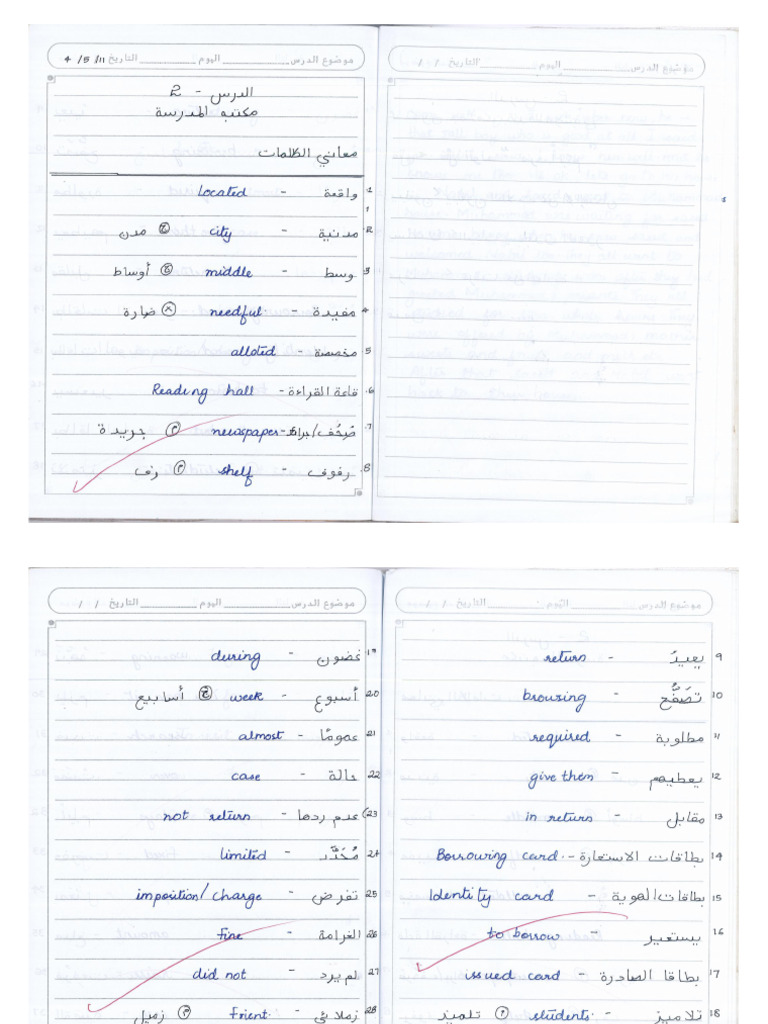 موضوع الدرس ______ اليوم ______ التاريخ 11/ 5/ 4
الدرس - 2
مكتبه المدرسة
معاني الكلمات
1 واقعة - located
2 مدنية - city ج مدن
3 وسط - middle ج أوساط
4 مفيدة - needful × ضارة
5 مخصصة - alloted
6 قاعة القراءة - Reading hall
7 صُحُف/جرائد - newspaper م جريدة
8 رفوف - shelf م رف
موضوع الدرس ______ اليوم ______ التاريخ / /
موضوع الدرس ______ اليوم ______ التاريخ / /
9 يعيدَ - return
10 تصَفُّح - brousing
11 مطلوبة - required
12 يعطيهم - give them
13 مقابل - in return
14 بطاقات الاستعارة - Borrouring card
15 بطاقات الهوية - Identity card
16 يستعير - to borrow
17 بطاقا الصادرة - issued card
18 تلاميز - students م تلميز
موضوع الدرس ______ اليوم ______ التاريخ / /
19 غضون - during
20 أسبوع - week ج أسابيع
21 عمومًا - almost
22 حالة - case
23 عدم ردها - not return
24 مُحَدَّد - limited
25 تفرض - imposition/charge
26 الغرامة - fine
27 لم يرد - did not
28 زملائي - frient م زميل